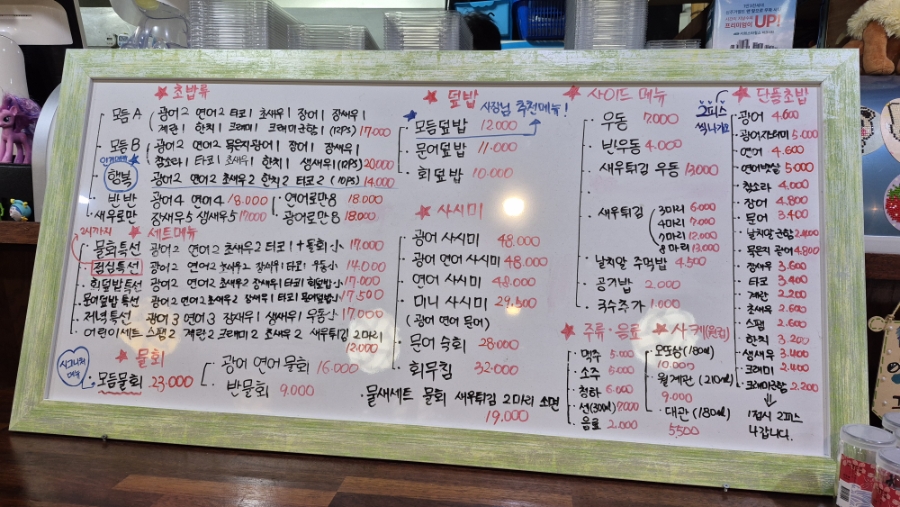 초밥류
모듬A 광어2 연어2 타코1 초새우1 장어1 장새우1
계란1 한치1 크래미1 크래미군함1 (12PS) 17,000
모듬B 광어2 연어2 묵은지광어1 장어1 장새우1
참소라1 타코1 초새우1 한치1 생새우1 (12PS) 20,000
행복 광어2 연어2 초새우2 한치2 타코2 (10PS) 14,000
반반 광어4 연어4 18,000 연어로만8 18,000
새우로만 장새우5 생새우5 17,000 광어로만8 18,000
2시까지 세트메뉴
물회특선 광어2 연어2 초새우2 타코1+물회小 17,000
점심특선 광어2 연어2 초새우2 장새우1 타코1 우동小 14,000
회덮밥특선 광어2 연어2 초새우2 장새우1 타코1 회덮밥小 17,000
문어덮밥특선 광어2 연어2 초새우2 장새우1 타코1 문어덮밥小 17,500
저녁특선 광어3 연어3 장새우1 생새우1 우동小 17,000
어린이세트 스팸2 계란2 크래미2 초새우2 새우튀김2마리
12,000
물회
모듬물회 23,000
광어 연어 물회 16,000
반물회 9,000
물새세트 물회 새우튀김 2마리 소면
19,000
덮밥
사장님 추천메뉴!
모듬덮밥 12,000
문어덮밥 11,000
회덮밥 10,000
사시미
광어 사시미 48,000
광어 연어 사시미 48,000
연어 사시미 48,000
미니 사시미 29,500
(광어 연어 문어)
문어 숙회 28,000
회무침 32,000
사이드 메뉴
우동 7,000
빈우동 4,000
새우튀김 우동 13,000
새우튀김
3마리 6,000
4마리 7,000
7마리 12,000
8마리 13,000
날치알 주먹밥 4,500
공기밥 2,000
국수추가 1,000
주류·음료
맥주 5,000
소주 5,000
청하 6,000
선(300㎖) 7,000
음료 2,000
사케(원컵)
오또상(180㎖)
10,000
월계관(210㎖)
9,000
대관(180㎖)
5,500
2피스
단품초밥
광어 4,600
광어지느러미 5,000
연어 4,600
연어뱃살 5,000
참소라 4,000
장어 4,800
문어 3,400
날치알군함 2,400
묵은지 광어 4,800
장새우 3,600
타코 3,400
계란 2,200
초새우 2,600
스팸 2,600
한치 3,200
생새우 3,400
크래미 2,400
크래미군함 2,200
1접시 2피스
나갑니다.
UP!